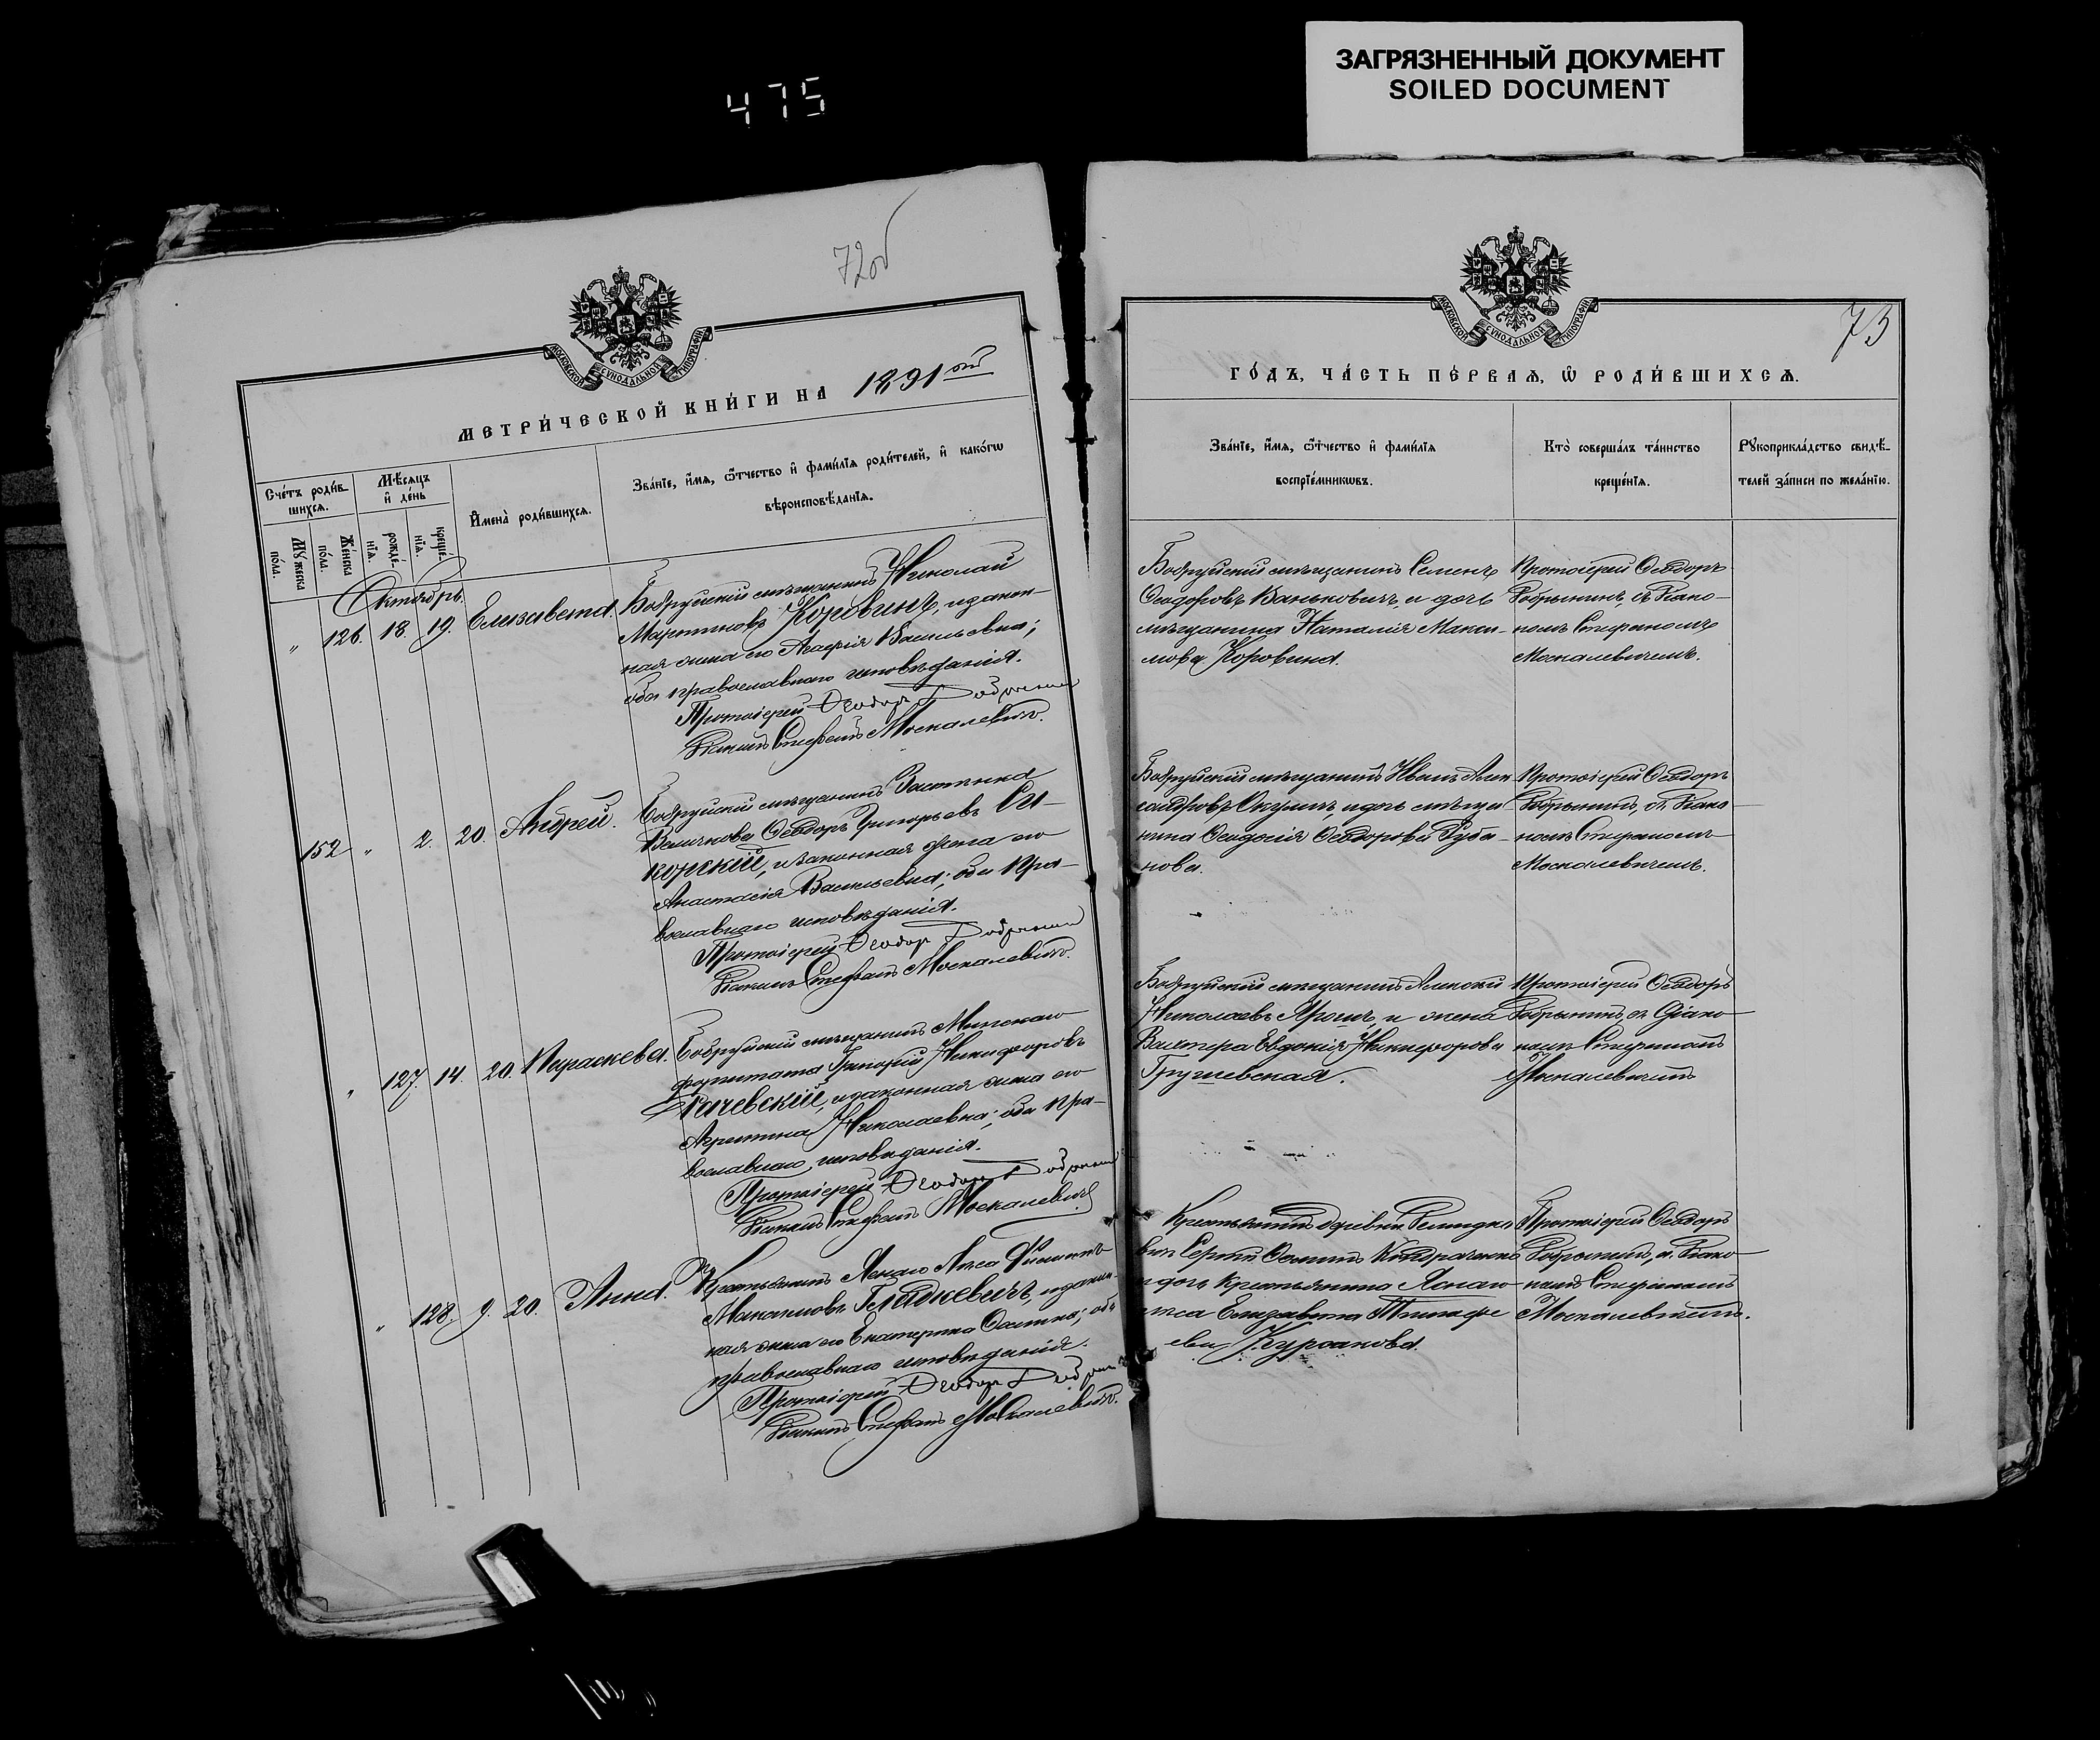 ЗАГРЯЗНЕННЫЙ ДОКУМЕНТ
SOILED DOCUMENT
475
72об
МОСКОВСКОЙ СѴНОДАЛЬНОЙ ТИПОГРАФІИ
МЕТРИ́ЧЕСКОЙ КНИ́ГИ НА 1891ый
Сче́тъ роди́в-
шихсѧ.
Мѣ́сѧцъ
и҆ де́нь
И҆мена̀ роди́вшихсѧ.
Зва́нїе, и҆́мѧ, ѻ҆́тчество и҆ фами́лїѧ роди́телей, и҆ како́гѡ
вѣроисповѣ́данїѧ.
Мꙋ́жеска
по́ла.
Же́нска
по́ла.
рожде́-
нїѧ.
креще́-
нїѧ.
Октябрь.
" 126. 18. 19. Елисавета.
Бобруйскій мѣщанинъ Николай
Мартиновъ Коровинъ, и закон-
ная жена его Агафія Васильевна;
оба православнаго исповѣданія.
Протоіерей Ѳеодоръ Добрынинъ
Діаконъ Стефанъ Москалевичъ.
152 " 2. 20. Андрей.
Бобруйскій мѣщанинъ
Ѳеодоръ Григорьевъ Си-
корскій, и законная жена его
Анастасія Васильевна; оба пра-
вославнаго исповѣданія.
Протоіерей Ѳеодоръ Добрынинъ
Діаконъ Стефанъ Москалевичъ.
" 127. 14. 20. Параскева.
Бобруйскій мѣщанинъ Минскаго
Никифоровъ
и законная жена его
Агрипина Николаевна; оба пра-
вославнаго исповѣданія.
Протоіерей Ѳеодоръ Добрынинъ
Діаконъ Стефанъ Москалевичъ
" 128. 9. 20. Анна.
Крестьянинъ Яснаго Лѣса Филиппъ
Максимовъ Гладкевичъ, и закон-
ная жена его Екатерина Осипова; оба
православнаго исповѣданія.
Протоіерей Ѳеодоръ Добрынинъ
Діаконъ Стефанъ Москалевичъ.
73
МОСКОВСКОЙ СѴНОДАЛЬНОЙ ТИПОГРАФІИ
ГО́ДЪ, ЧА́СТЬ ПЕ́РВАѦ, Ѡ҆ РОДИ́ВШИХСѦ.
Зва́нїе, и҆́мѧ, ѻ҆́тчество и҆ фами́лїѧ
воспрїе́мникѡвъ.
Кто̀ соверша́лъ та́инство
креще́нїѧ.
Рꙋкоприкла́дство свидѣ́-
телей за́писи по жела́нїю.
Бобруйскій мѣщанинъ Семенъ
Ѳеодоровъ Ваньковичъ, и дочь
мѣщанина Наталія Макси-
мова Коровина.
Протоіерей Ѳеодоръ
Добрынинъ, съ Діако-
номъ Стефаномъ
Москалевичемъ.
Бобруйскій мѣщанинъ Иванъ Алек
сандровъ Окулич, и дочь мѣща
нина Ѳеодосія Ѳеодорова Руба-
нова.
Протоіерей Ѳеодоръ
Добрынинъ, съ Діако
номъ Стефаномъ
Москалевичемъ.
Бобруйскій мѣщанинъ Алексѣй
Николаевъ Ярошъ, и жена
Евдокія Никифорова
Грушевская.
Протоіерей Ѳеодоръ
Добрынинъ, съ Діако
номъ Стефаномъ
Москалевичемъ
Крестьянинъ деревни
Сергѣй Осиповъ Кондраченко
и дочь крестьянина Яснаго
Лѣса Елизавета Тимофе
ева Курсакова.
Протоіерей Ѳеодоръ
Добрынинъ, съ Діако
номъ Стефаномъ
Москалевичемъ.